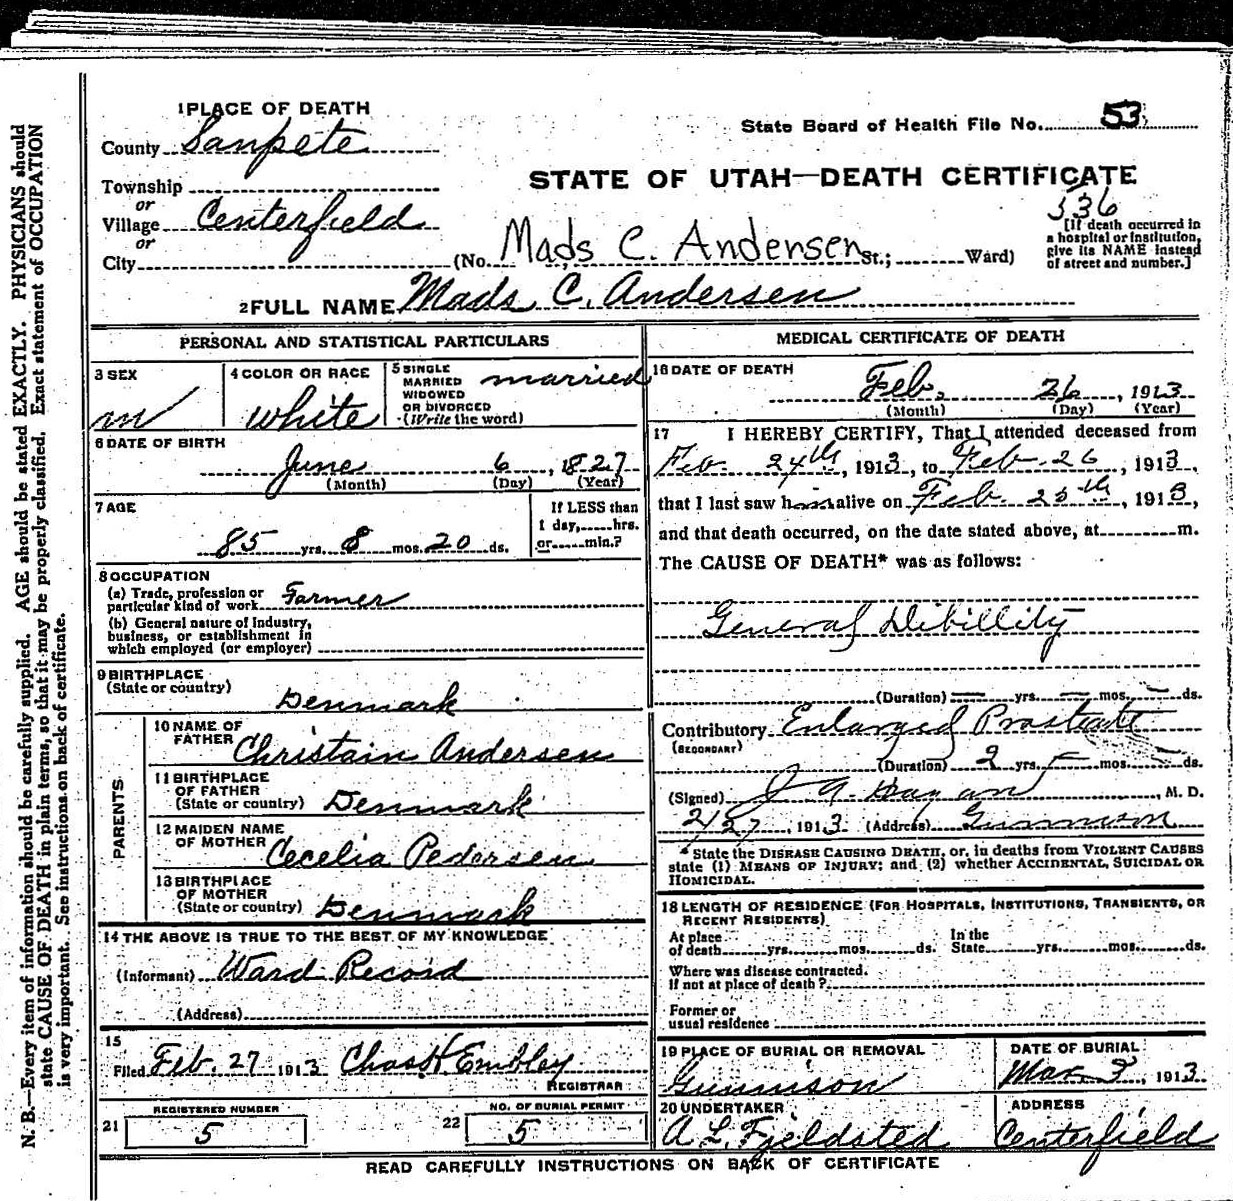 1 PLACE OF DEATH
County Sanpete
State Board of Health File No. 53
Township
or
Village Centerfield
or
City
STATE OF UTAH—DEATH CERTIFICATE
536
(No. Mads C. Andersen St.; Ward)
[If death occurred in
a hospital or institution,
give its NAME instead
of street and number.]
2 FULL NAME Mads C. Andersen
PERSONAL AND STATISTICAL PARTICULARS
3 SEX
m
4 COLOR OR RACE
white
5 SINGLE
MARRIED
WIDOWED
OR DIVORCED
(Write the word)
married
6 DATE OF BIRTH
June 6, 1827
(Month) (Day) (Year)
7 AGE
85 yrs. 8 mos. 20 ds.
If LESS than
1 day, hrs.
or min.?
8 OCCUPATION
(a) Trade, profession or
particular kind of work Farmer
(b) General nature of Industry,
business, or establishment in
which employed (or employer)
9 BIRTHPLACE
(State or country)
Denmark
PARENTS
10 NAME OF
FATHER Christain Andersen
11 BIRTHPLACE
OF FATHER
(State or country) Denmark
12 MAIDEN NAME
OF MOTHER Cecelia Pedersen
13 BIRTHPLACE
OF MOTHER
(State or country) Denmark
14 THE ABOVE IS TRUE TO THE BEST OF MY KNOWLEDGE
(Informant) Ward Record
(Address)
15
Filed Feb. 27 1913 Chas H Embley
REGISTRAR
REGISTERED NUMBER
21 5
NO. OF BURIAL PERMIT
22 5
MEDICAL CERTIFICATE OF DEATH
16 DATE OF DEATH
Feb. 26, 1913
(Month) (Day) (Year)
17 I HEREBY CERTIFY, That I attended deceased from
Feb. 24th, 1913, to Feb. 26, 1913,
that I last saw him alive on Feb 25th, 1913,
and that death occurred, on the date stated above, at m.
The CAUSE OF DEATH* was as follows:
General Dibillity
(Duration) — yrs. — mos. — ds.
Contributory Enlarged Prostrate
(SECONDARY)
(Duration) 2 yrs. — mos. ds.
(Signed) J A Hagan, M. D.
2/27, 1913 (Address) Gunnison
* State the DISEASE CAUSING DEATH, or, in deaths from VIOLENT CAUSES
state (1) MEANS OF INJURY; and (2) whether ACCIDENTAL, SUICIDAL OR
HOMICIDAL.
18 LENGTH OF RESIDENCE (FOR HOSPITALS, INSTITUTIONS, TRANSIENTS, OR
RECENT RESIDENTS)
At place In the
of death yrs. mos. ds. State yrs. mos. ds.
Where was disease contracted.
If not at place of death?
Former or
usual residence
19 PLACE OF BURIAL OR REMOVAL
Gunnison
DATE OF BURIAL
Mar 3, 1913
20 UNDERTAKER
A L Fjeldsted
ADDRESS
Centerfield
READ CAREFULLY INSTRUCTIONS ON BACK OF CERTIFICATE
N. B.—Every item of information should be carefully supplied. AGE should be stated EXACTLY. PHYSICIANS should
state CAUSE OF DEATH in plain terms, so that it may be properly classified. Exact statement of OCCUPATION
is very important. See instructions on back of certificate.